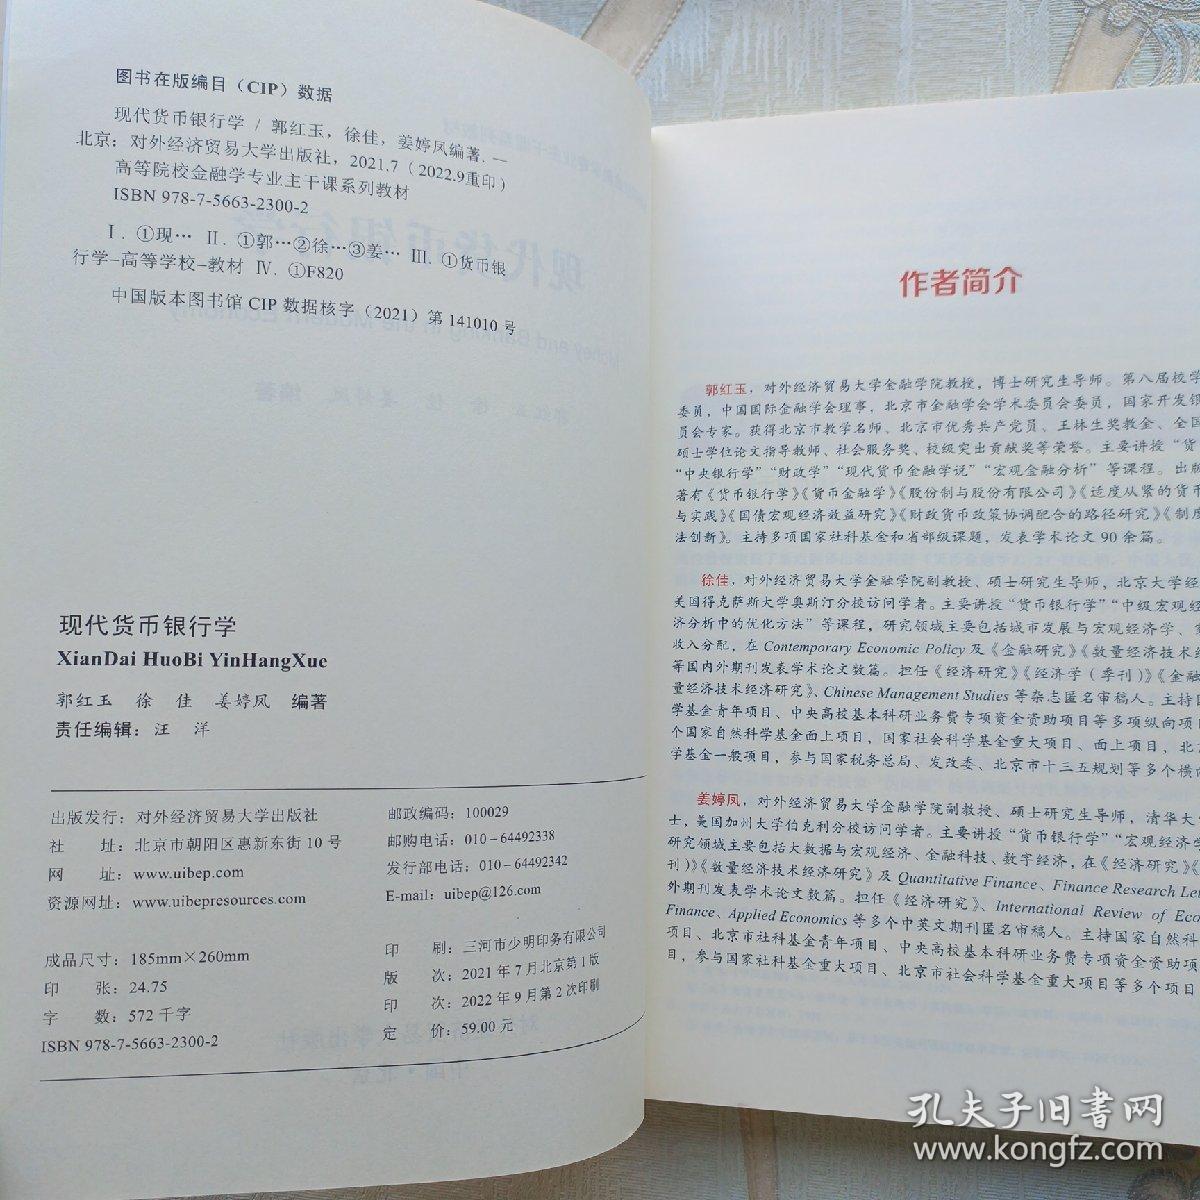 图书在版编目（CIP）数据
现代货币银行学 / 郭红玉，徐佳，姜婷凤编著. —
北京：对外经济贸易大学出版社，2021.7（2022.9重印）
高等院校金融学专业主干课系列教材
ISBN 978-7-5663-2300-2
Ⅰ. ①现… Ⅱ. ①郭…②徐…③姜… Ⅲ. ①货币银
行学-高等学校-教材 Ⅳ. ①F820
中国版本图书馆 CIP 数据核字（2021）第 141010 号
现代货币银行学
XianDai HuoBi YinHangXue
郭红玉 徐 佳 姜婷凤 编著
责任编辑：汪 洋
出版发行：对外经济贸易大学出版社
社 址：北京市朝阳区惠新东街 10 号
网 址：www.uibep.com
资源网址：www.uibepresources.com
邮政编码：100029
邮购电话：010-64492338
发行部电话：010-64492342
E-mail：uibep@126.com
成品尺寸：185mm×260mm
印 张：24.75
字 数：572 千字
ISBN 978-7-5663-2300-2
印 刷：三河市少明印务有限公司
版 次：2021 年 7 月北京第 1 版
印 次：2022 年 9 月第 2 次印刷
定 价：59.00 元
作者简介
郭红玉，对外经济贸易大学金融学院教授，博士研究生导师。第八届校学
委员，中国国际金融学会理事，北京市金融学会学术委员会委员，国家开发银
员会专家。获得北京市教学名师、北京市优秀共产党员、王林生奖教金、全国
硕士学位论文指导教师、社会服务奖、校级突出贡献奖等荣誉。主要讲授“货
“中央银行学”“财政学”“现代货币金融学说”“宏观金融分析”等课程。出版
著有《货币银行学》《货币金融学》《股份制与股份有限公司》《适度从紧的货币
与实践》《国债宏观经济效益研究》《财政货币政策协调配合的路径研究》《制度
法创新》。主持多项国家社科基金和省部级课题，发表学术论文 90 余篇。
徐佳，对外经济贸易大学金融学院副教授、硕士研究生导师，北京大学经
美国得克萨斯大学奥斯汀分校访问学者。主要讲授“货币银行学”“中级宏观经
济分析中的优化方法”等课程，研究领域主要包括城市发展与宏观经济学、
收入分配，在 Contemporary Economic Policy 及《金融研究》《数量经济技术经
等国内外期刊发表学术论文数篇。担任《经济研究》《经济学（季刊）》《金融
量经济技术经济研究》、Chinese Management Studies 等杂志匿名审稿人。主持国
学基金青年项目、中央高校基本科研业务费专项资金资助项目等多项纵向项目
个国家自然科学基金面上项目，国家社会科学基金重大项目、面上项目，北京
学基金一般项目，参与国家税务总局、发改委、北京市十三五规划等多个横向
姜婷凤，对外经济贸易大学金融学院副教授、硕士研究生导师，清华大
士，美国加州大学伯克利分校访问学者。主要讲授“货币银行学”“宏观经济学
研究领域主要包括大数据与宏观经济、金融科技、数字经济，在《经济研究》《
刊）》《数量经济技术经济研究》及 Quantitative Finance、Finance Research Let
外期刊发表学术论文数篇。担任《经济研究》、International Review of Econ
Finance、Applied Economics 等多个中英文期刊匿名审稿人。主持国家自然科
项目、北京市社科基金青年项目、中央高校基本科研业务费专项资金资助项
目，参与国家社科基金重大项目、北京市社会科学基金重大项目等多个项目
孔夫子旧书网
www.kongfz.com